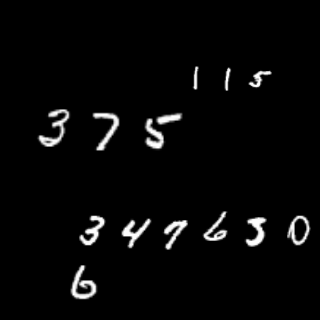 115
375
347650
6